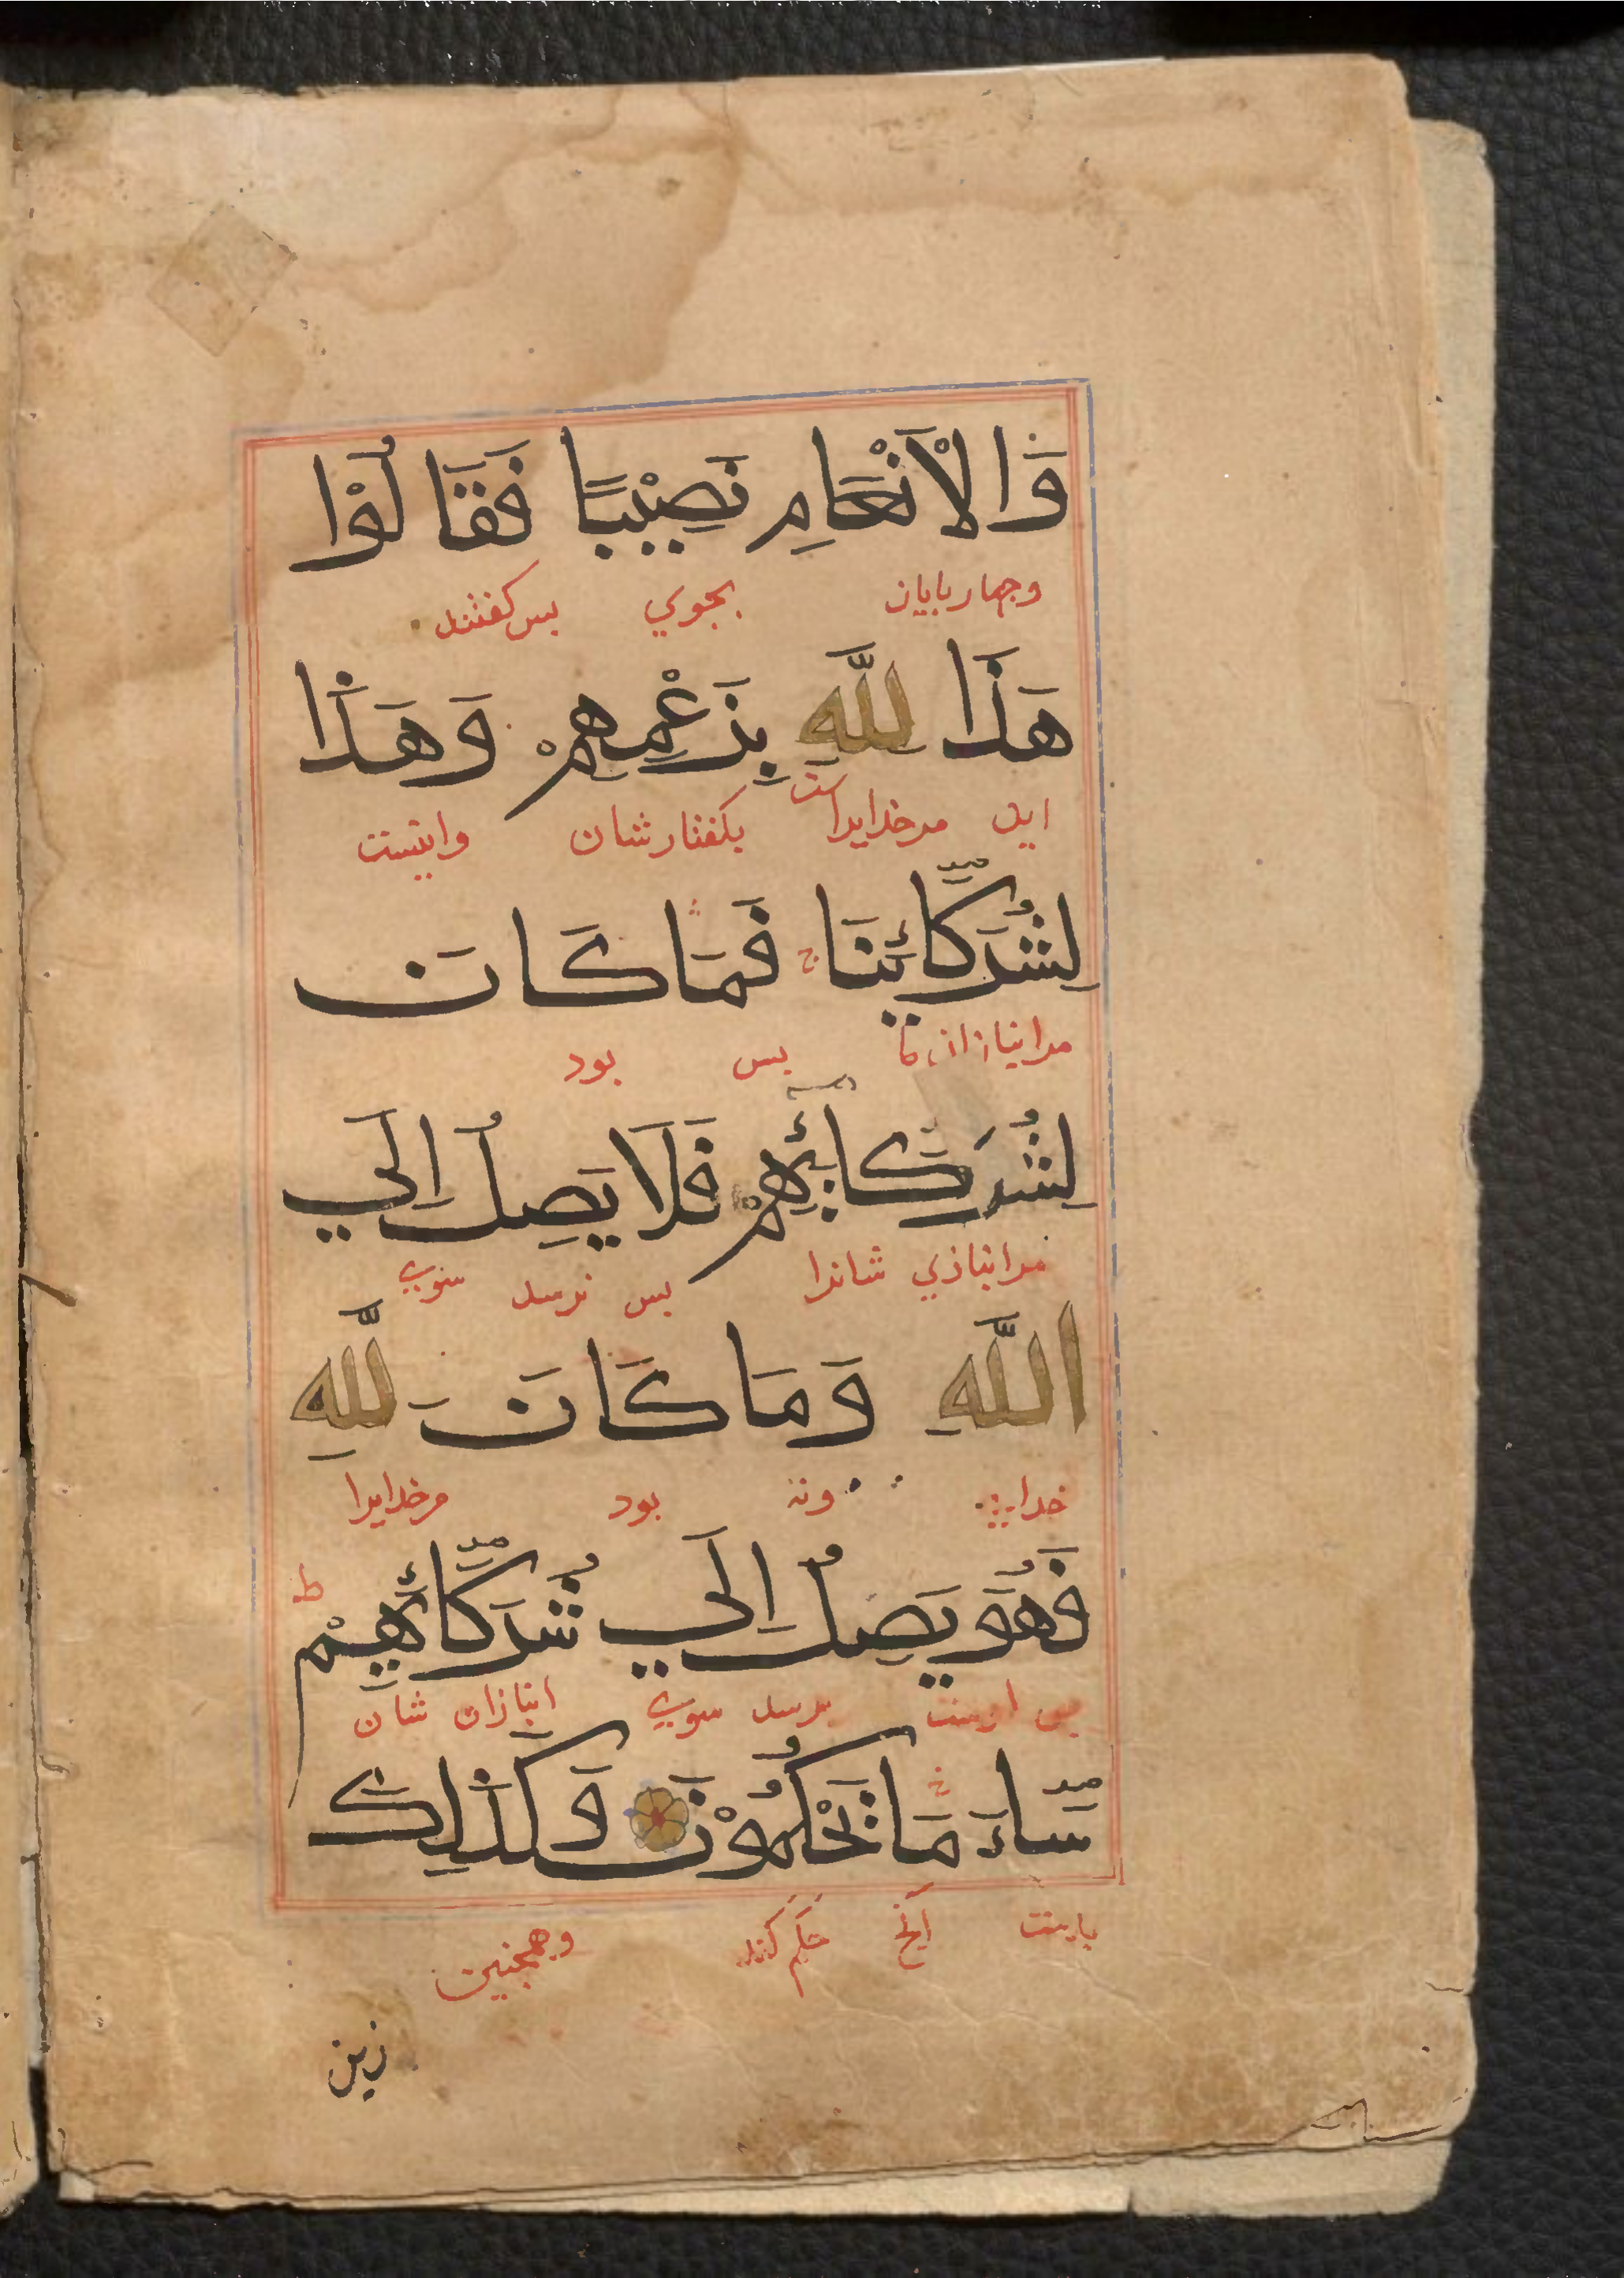 وَالْاَنْعَامِ نَصِيْبًا فَقَالُوْا
وجهاربایان بجوي بس کفتند
هَذَا لِلّٰهِ بِزَعْمِهِمْ وَهَذَا
این مرخدایراست بکفتارشان واینست
لِشُرَكَائِنَا ج فَمَا كَانَ
مرانبازان ما بس بود
لِشُرَكَائِهِمْ فَلَا يَصِلُ اِلَي
مرانبازي شانرا بس نرسد سوي
اللّٰهِ وَمَا كَانَ لِلّٰهِ
خداي ونه بود مرخدایرا
فَهُوَ يَصِلُ اِلَي شُرَكَائِهِمْ ط
بس برسد سوي انبازان شان
سَاءَ مَا يَحْكُمُوْنَ وَكَذَلِكَ
آنج حکم کنند وهمجنین
زين